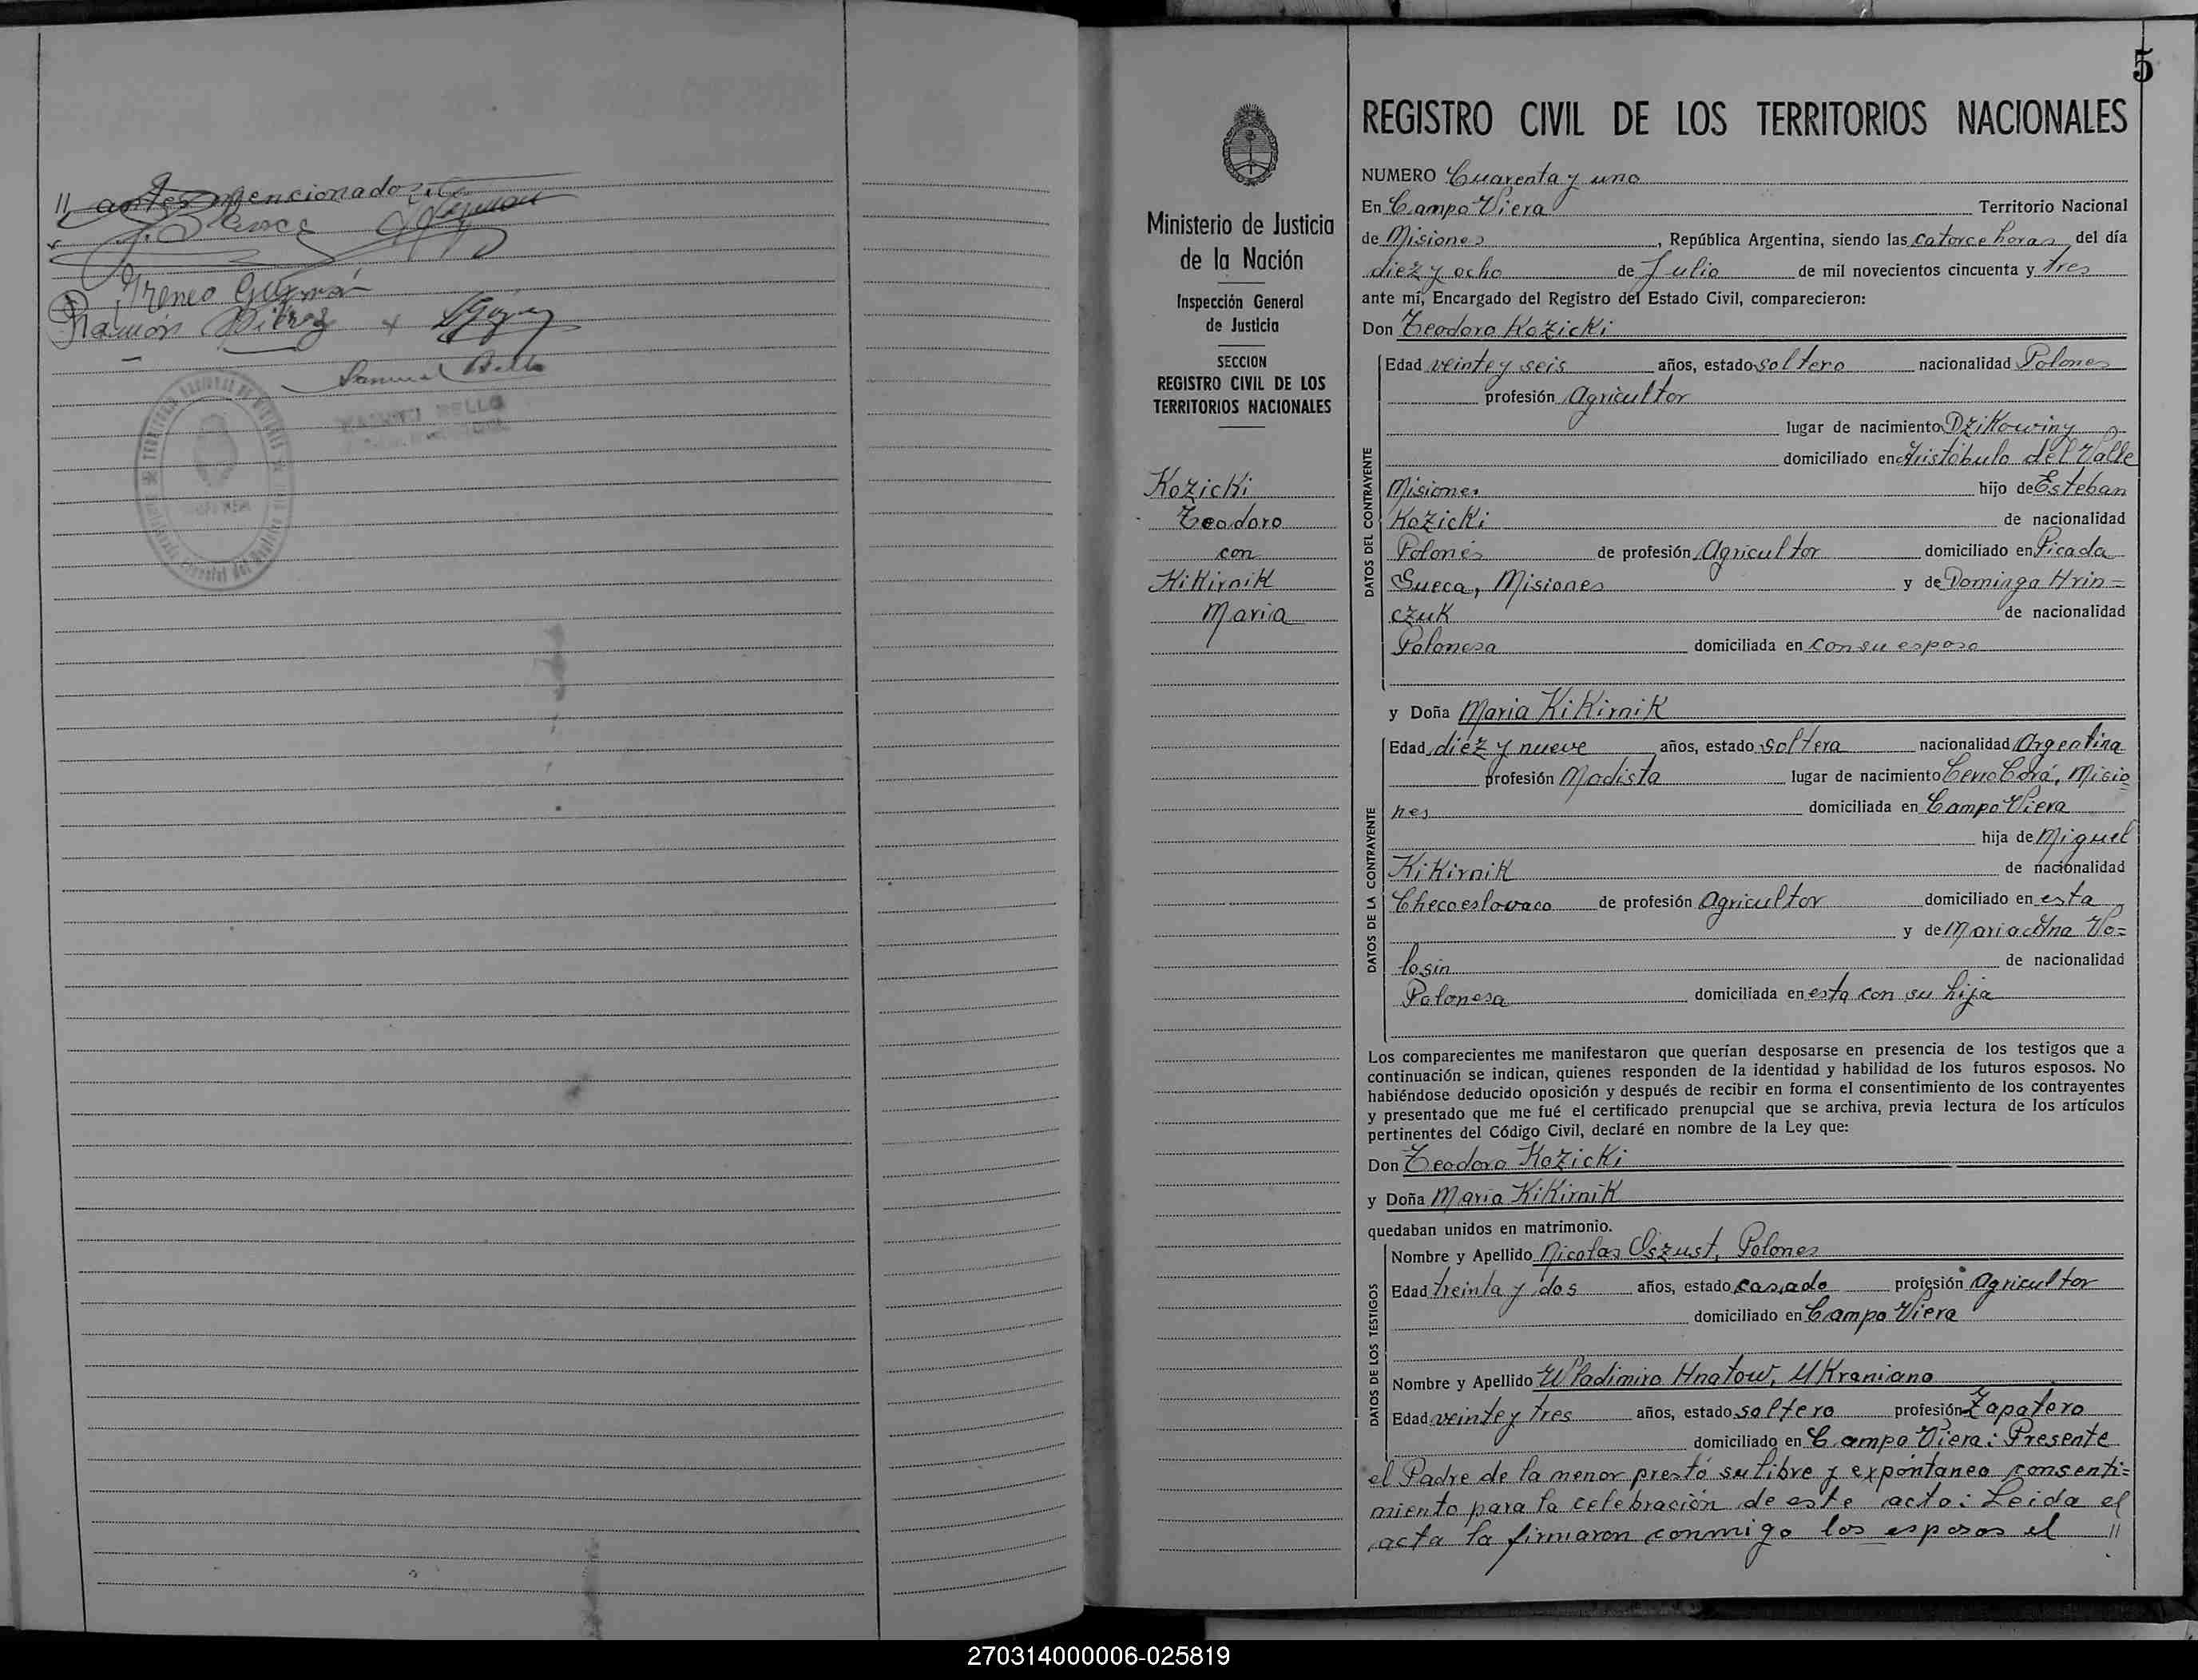 // antes mencionado
Ireneo Guzmán
Ramón
Samuel Bello
SAMUEL BELLO
5
Ministerio de Justicia
de la Nación
Inspección General
de Justicia
SECCION
REGISTRO CIVIL DE LOS
TERRITORIOS NACIONALES
Kozicki
Teodoro
con
Kikirnik
Maria
REGISTRO CIVIL DE LOS TERRITORIOS NACIONALES
NUMERO Cuarenta y uno
En Campo Viera Territorio Nacional
de Misiones, República Argentina, siendo las catorce horas del día
diez y ocho de Julio de mil novecientos cincuenta y tres
ante mí, Encargado del Registro del Estado Civil, comparecieron:
Don Teodoro Kozicki
DATOS DEL CONTRAYENTE
Edad veinte y seis años, estado soltero nacionalidad Polones
profesión Agricultor
lugar de nacimiento Dzikowiny
domiciliado en Aristóbulo del Valle
Misiones hijo de Esteban
Kozicki de nacionalidad
Polonés de profesión Agricultor domiciliado en Picada
Sueca, Misiones y de Dominga Hrin=
czuk de nacionalidad
Polonesa domiciliada en con su esposo
y Doña Maria Kikirnik
DATOS DE LA CONTRAYENTE
Edad diez y nueve años, estado soltera nacionalidad Argentina
profesión Modista lugar de nacimiento Cerro Corá, Misio=
nes domiciliada en Campo Viera
hija de Miguel
Kikirnik de nacionalidad
Checoeslovaco de profesión Agricultor domiciliado en esta
y de Maria Ana Vo=
losin de nacionalidad
Polonesa domiciliada en esta con su hija
Los comparecientes me manifestaron que querían desposarse en presencia de los testigos que a
continuación se indican, quienes responden de la identidad y habilidad de los futuros esposos. No
habiéndose deducido oposición y después de recibir en forma el consentimiento de los contrayentes
y presentado que me fué el certificado prenupcial que se archiva, previa lectura de los artículos
pertinentes del Código Civil, declaré en nombre de la Ley que:
Don Teodoro Kozicki
y Doña Maria Kikirnik
quedaban unidos en matrimonio.
DATOS DE LOS TESTIGOS
Nombre y Apellido Nicolas Oszust, Polones
Edad treinta y dos años, estado casado profesión Agricultor
domiciliado en Campo Viera
Nombre y Apellido Wladimiro Hnatow, Ukraniano
Edad veinte y tres años, estado soltero profesión Zapatero
domiciliado en Campo Viera: Presente
el Padre de la menor prestó su libre y expóntaneo consenti=
miento para la celebración de este acto: Leida el
acta la firmaron conmigo los esposos el //
270314000006-025819